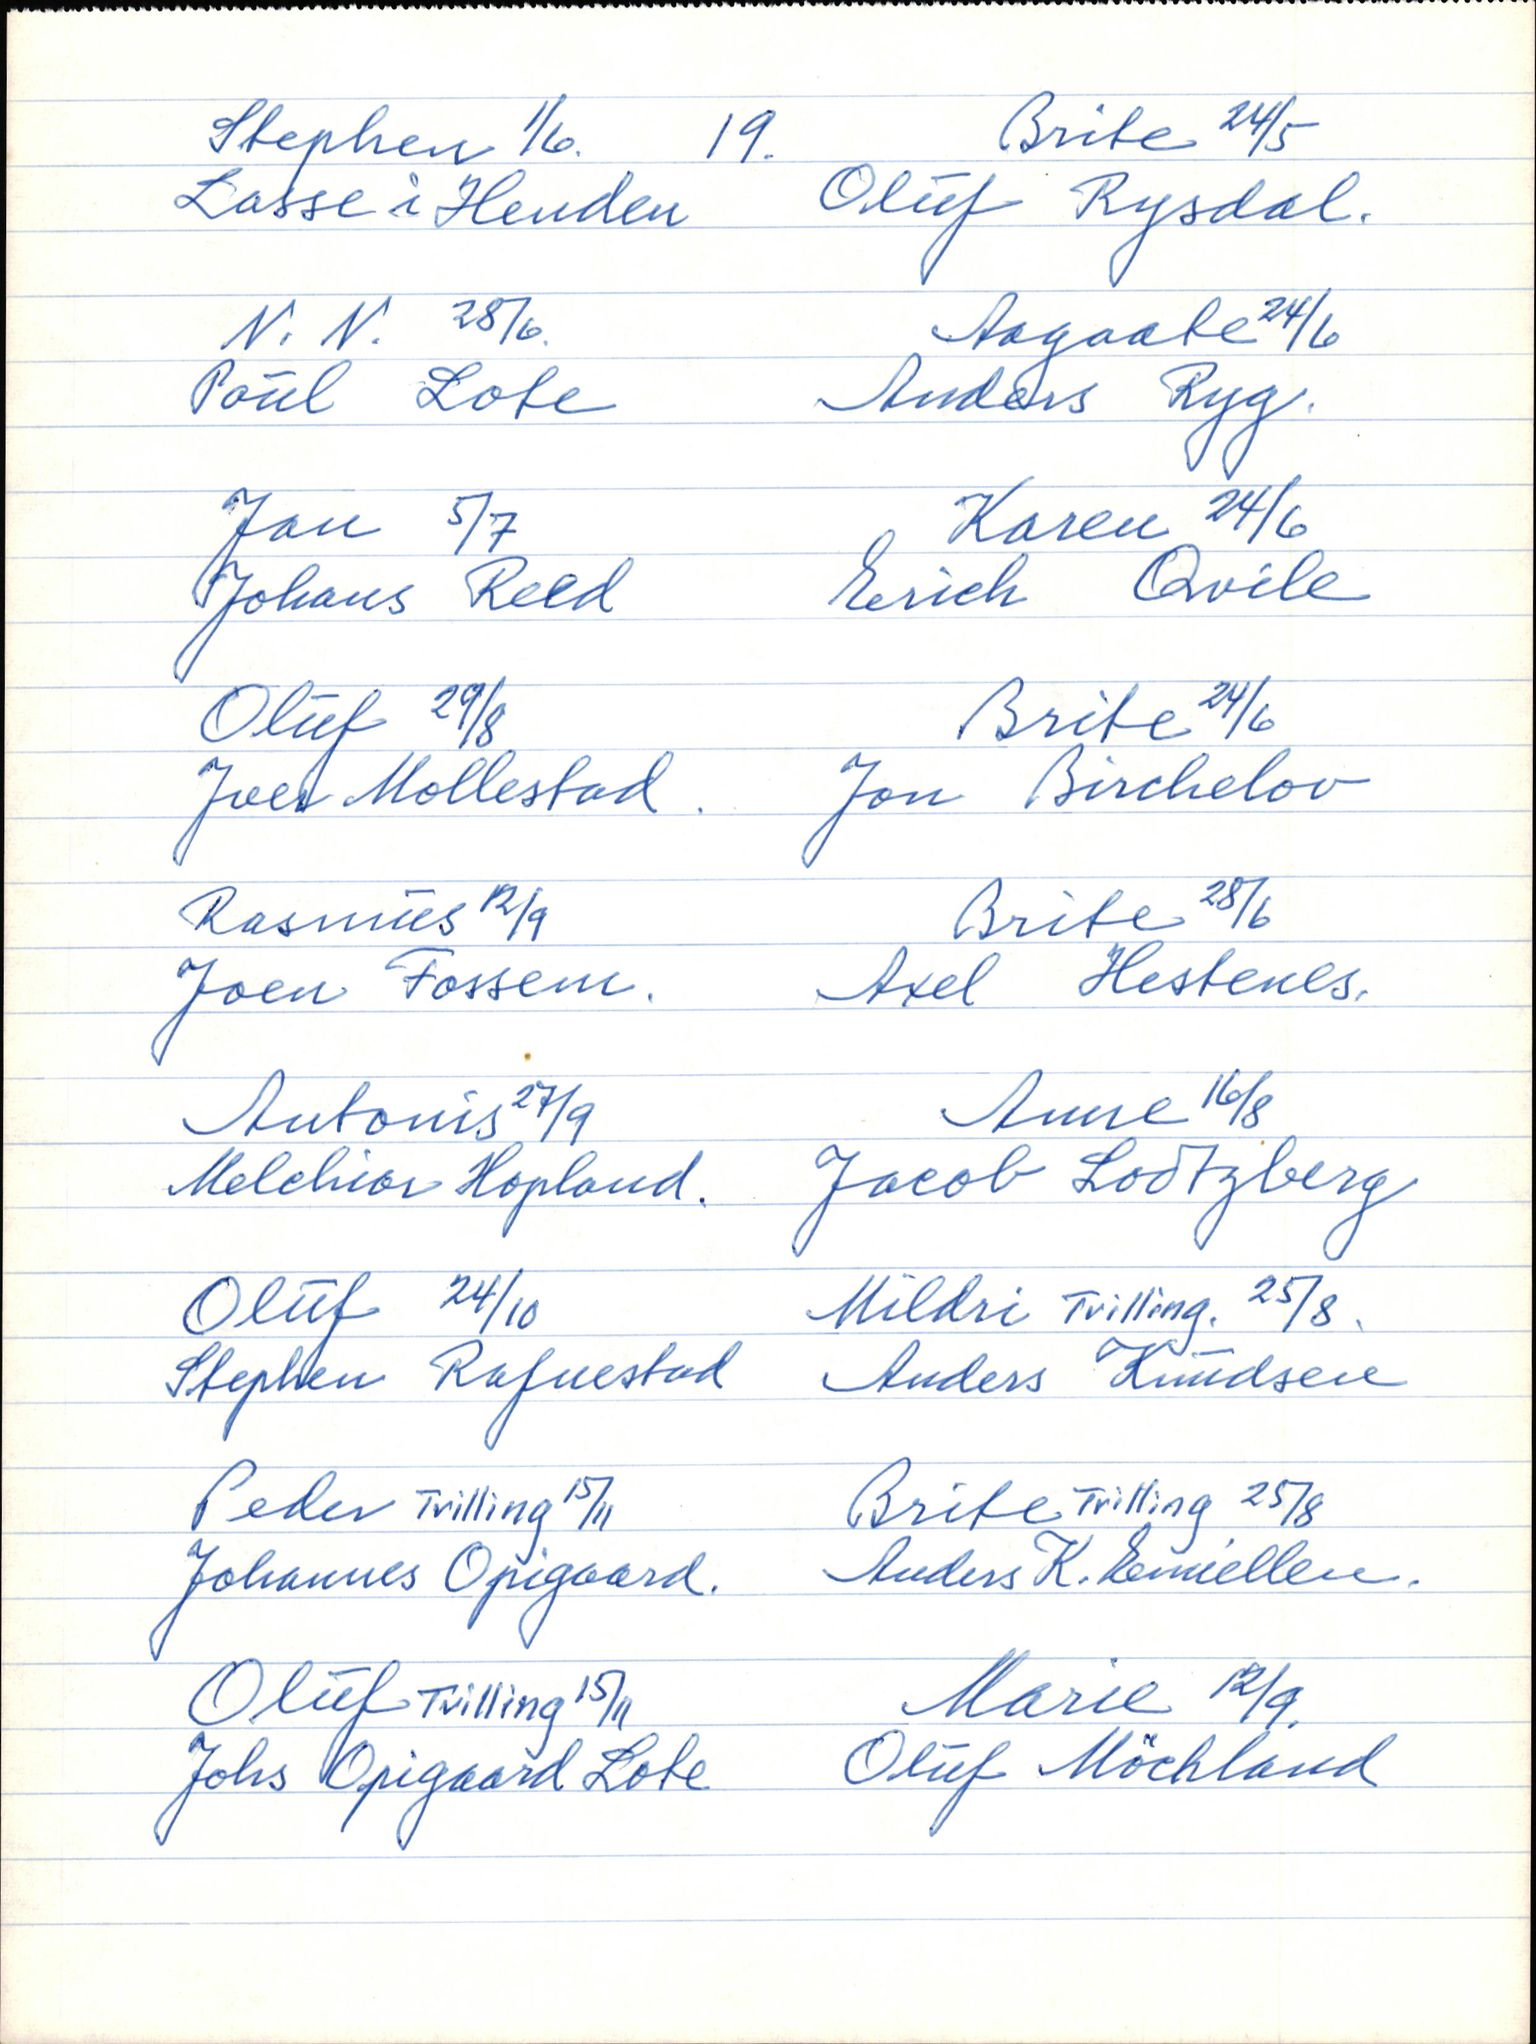 Stephen 1/6. 19. Brite 24/5
Lasse i Henden Oluf Rysdal.
N. N. 28/6. Aagaate 24/6
Poul Lote Anders Ryg.
Jan 5/7 Karen 24/6
Johans Reed Erich Qvile
Oluf 29/8 Brite 24/6
Iver Mollestad. Jon Birchelov
Rasmus 12/9 Brite 28/6
Joen Fossem. Axel Hestenes.
Antonis 27/9 Anne 16/8
Melchior Hopland. Jacob Lodtzberg
Oluf 24/10 Mildri Tvilling. 25/8.
Stephen Rafnestad Anders Knudsen
Peder Tvilling 15/11 Brite Tvilling 25/8
Johannes Opigaard. Anders K.
Oluf Tvilling 15/11 Marie 12/9.
Johs Opigaard Lote Oluf Möchland